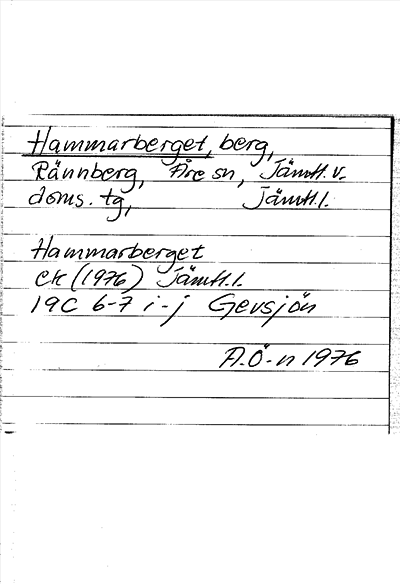 Hammarberget, berg,
Rännberg, Åre sn, Jämtl. v.
doms. tg, Jämtl. l.
Hammarberget
ek (1976) Jämtl. l.
19C 6-7 i-j Gevsjön
A.Ö-n 1976